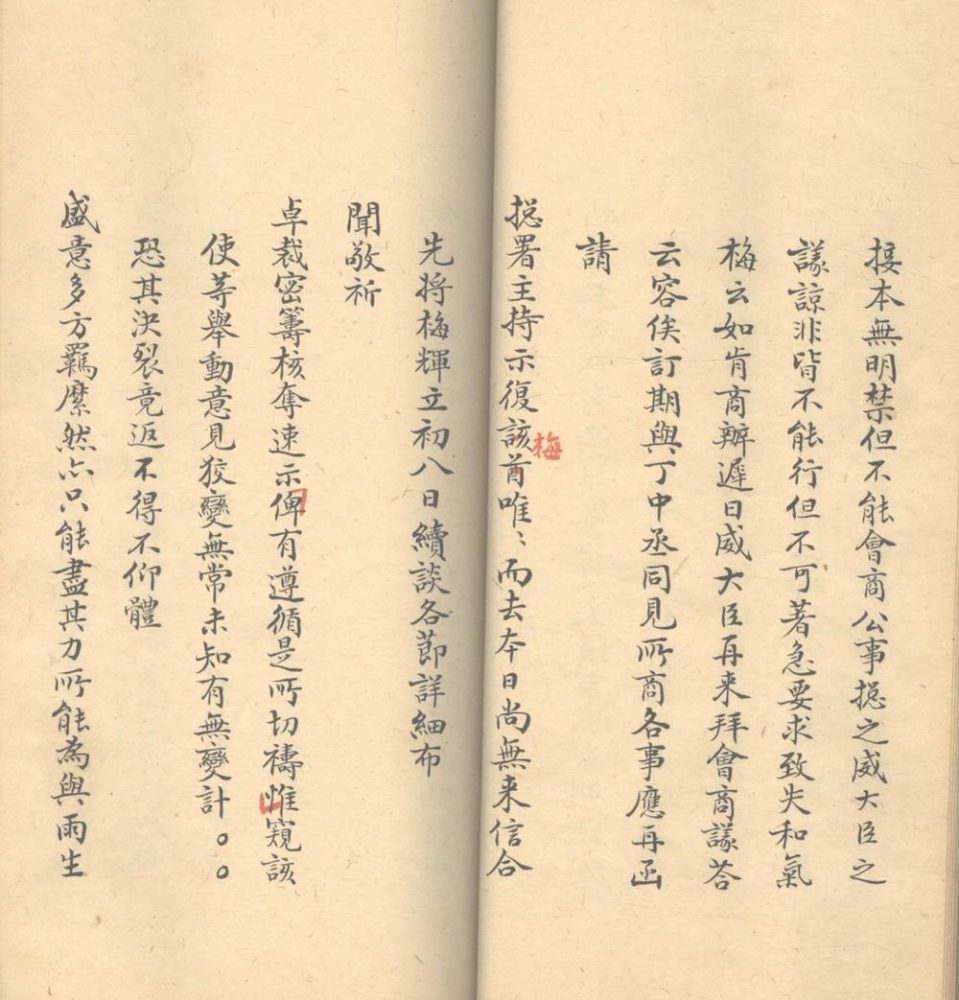 接本無明禁但不能會商公事揔之威大臣之
議諒非皆不能行但不可著急要求致失和氣
梅云如肯商辦遲日威大臣再来拜會商議荅
云容俟訂期與丁中丞同見所商各事應再函
請
揔署主持示復該酋唯〻而去本日尚無来信合
梅
先将梅輝立初八日續談各節詳細布
聞敬祈
卓裁密籌核奪速示俾有遵循是所切禱惟窺該
使等舉動意見狡變無常未知有無變計。。
恐其决裂竟返不得不仰體
盛意多方羈縻然亦只能盡其力所能為與雨生